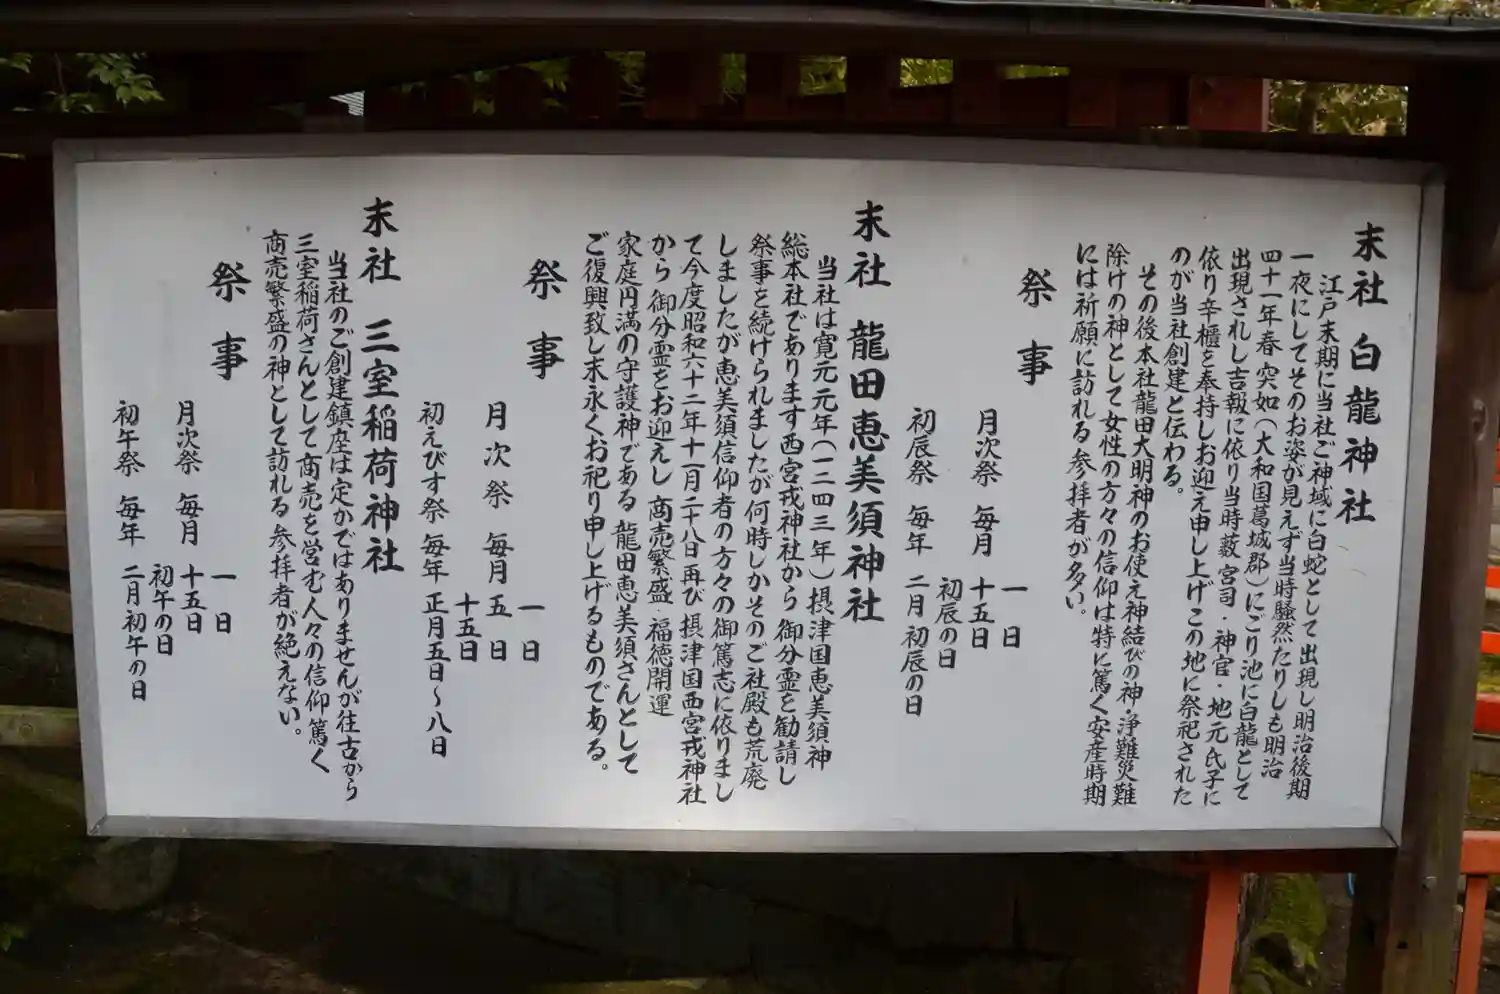 末社 白龍神社
江戸末期に当社ご神域に白蛇として出現し明治後期
一夜にしてそのお姿が見えず当時騒然たりしも明治
四十一年春 突如(大和国葛城郡)にごり池に白龍として
出現されし吉報に依り当時藪宮司・神官・地元氏子に
依り辛櫃を奉持しお迎え申し上げこの地に祭祀された
のが当社創建と伝わる。
その後本社龍田大明神のお使え神結びの神・浄難災難
除けの神として女性の方々の信仰は特に篤く安産時期
には祈願に訪れる参拝者が多い。
祭事
月次祭 毎月 一日
十五日
初辰の日
初辰祭 毎年 二月 初辰の日
末社 龍田恵美須神社
当社は寛元元年(一二四三年)摂津国恵美須神
総本社であります西宮戎神社から 御分霊を勧請し
祭事を続けられましたが何時しかそのご社殿も荒廃
しましたが恵美須信仰者の方々の御篤志に依りまし
て今度昭和六十二年十一月二十八日再び 摂津国西宮戎神社
から 御分霊をお迎えし 商売繁盛・福徳開運
家庭円満の守護神である 龍田恵美須さんとして
ご復興致し末永くお祀り申し上げるものである。
祭事
月次祭 毎月 一日
五日
十五日
初えびす祭 毎年 正月五日～八日
末社 三室稲荷神社
当社のご創建鎮座は定かではありませんが往古から
三室稲荷さんとして商売を営む人々の信仰篤く
商売繁盛の神として訪れる 参拝者が絶えない。
祭事
月次祭 毎月 一日
十五日
初午の日
初午祭 毎年 二月初午の日